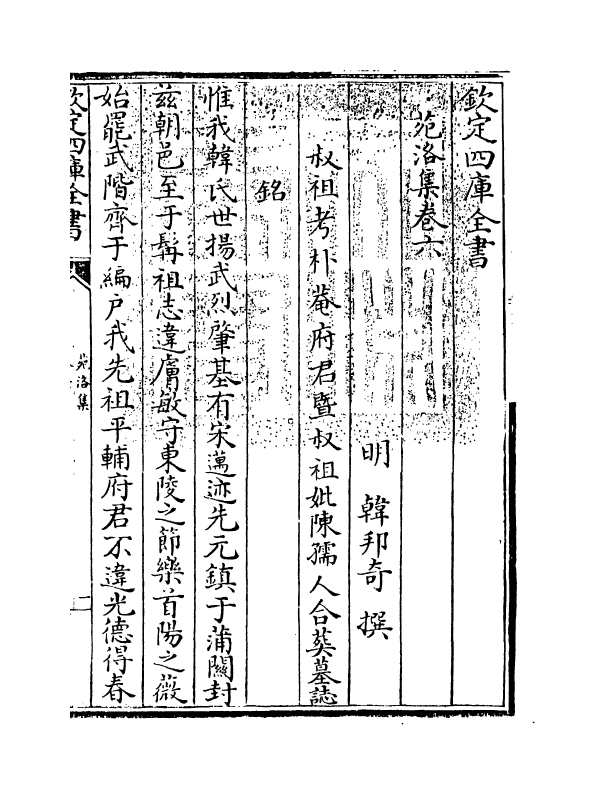 欽定四庫全書
苑洛集卷六
明 韓邦奇 撰
叔祖考朴菴府君暨叔祖妣陳孺人合葬墓誌
銘
惟我韓氏世揚武烈肇基有宋邁迹先元鎮于蒲關封
茲朝邑至于髯祖志違膚敏守東陵之節樂首陽之薇
始罷武階齊于編户我先祖平輔府君不違光德得春
欽定四庫全書
苑洛集